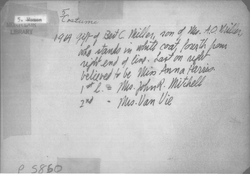 Costume
1969 gift of Bert C. Miller, son of Mrs. A.C. Miller
who stands in white coat, fourth from
right end of line. Last on right
believed to be Miss Anna Ferris
1st L. = Mrs. John R. Mitchell
2nd - Mrs. Van Vie
P 5860